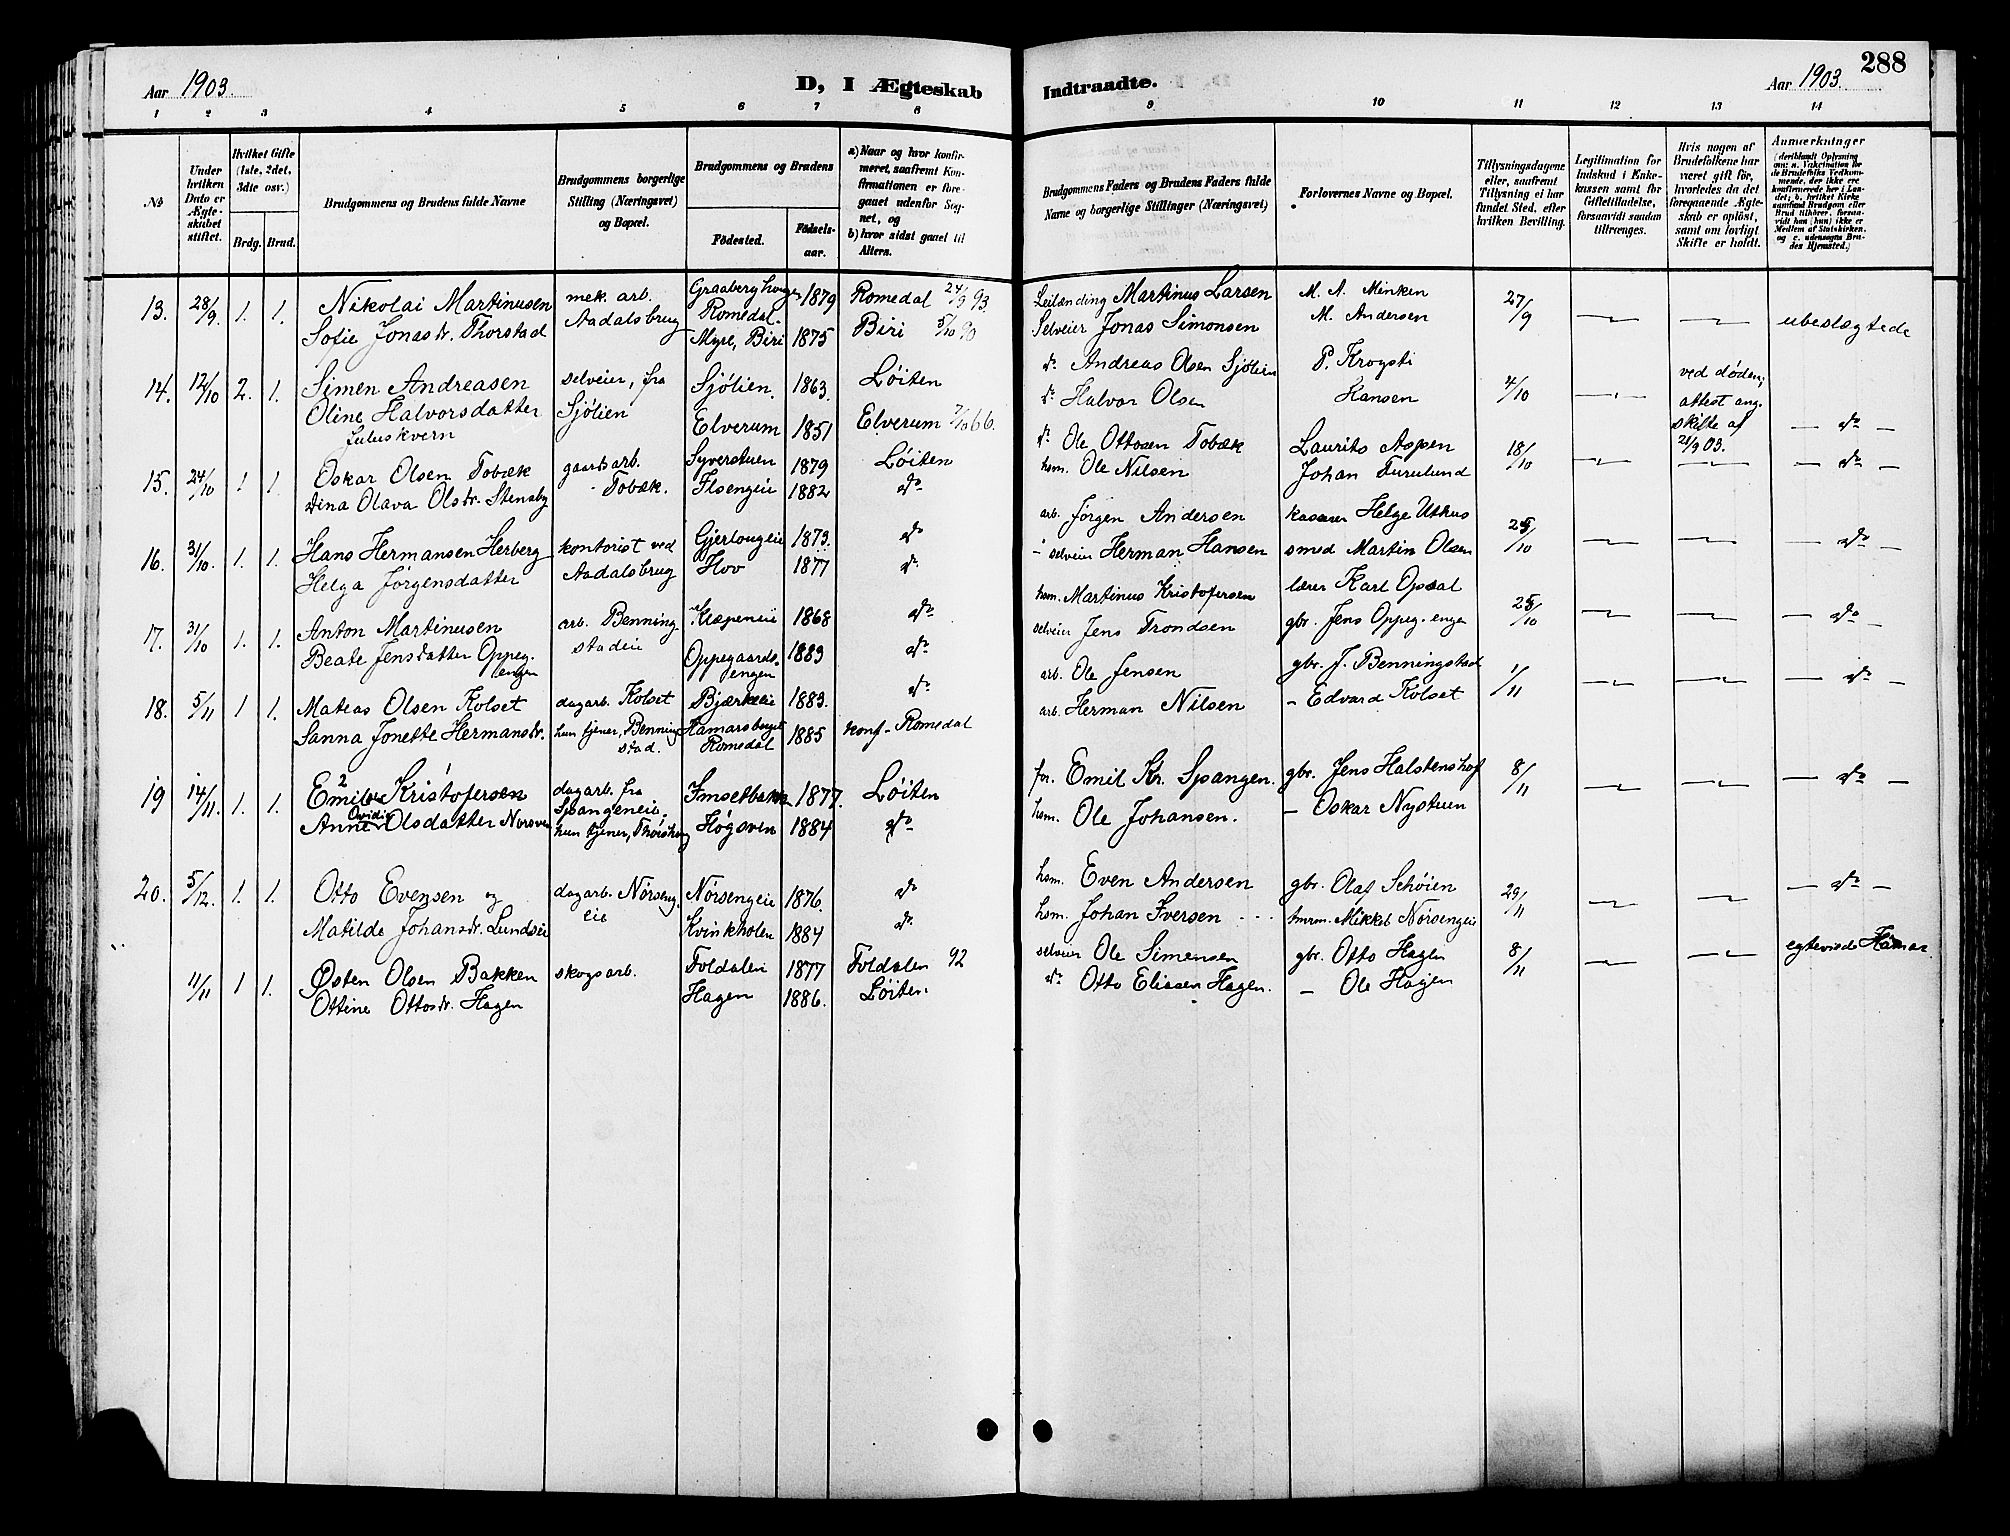 288
Aar 1903.
D, I Ægteskab
Indtraadte.
Aar 1903.
1 2 3 4 5 6 7 8
9 10 11 12 13 14
No
Under hvilken Dato er Ægteskabet stiftet.
Hvilket Gifte (1ste, 2det, 3die osv.)
Brdg. Brud.
Brudgommens og Brudens fulde Navne
Brudgommens borgerlige Stilling (Næringsvei) og Bopæl.
Brudgommens og Brudens
Födested.
Födselsaar.
a) Naar og hvor konfirmeret, saafremt Konfirmationen er foregaaet udenfor Sognet, og
b) hvor sidst gaaet til Alters.
Brudgommens Faders og Brudens Faders fulde Navne og borgerlige Stillinger (Næringsvei)
Forlovernes Navne og Bopæl.
Tillysningsdagene eller, saafremt Tillysning ei har fundet Sted, efter hvilken Bevilling.
Legitimation for Indskud i Enkekassen samt for Giftetilladelse, forsaavidt saadan tiltrænges.
Hvis nogen af Brudefolkene har været gift för, hvorledes da det foregaaende Ægteskab er oplöst, samt om lovligt Skifte er holdt.
Anmærkninger
(deriblandt Oplysning om: a. Vakcination for de Brudefolks Vedkommende, der ikke ere konfirmerede her i Landet; b. hvilket Kirkesamfund Brudgom eller Brud tilhører, forsaavidt han (hun) ikke er Medlem af Statskirken, og c. udensogns Brudes Hjemsted.)
13. 28/9. 1. 1. Nikolai Martinusen mek. arb. Graaberghaugen Romedal. 1879 Romedal 24/9 93. Leilænding Martinus Larsen M. A. Minken 27/9
Sofie Jonasdr. Thorstad Aadalsbrug Myre, Biri 1875 Biri 5/10 90 Selveier Jonas Simonsen M. Andersen ubeslægtede
14. 12/10 2. 1. Simen Andreasen selveier, fra Sjölien. 1863. Löiten do Andreas Olsen Sjölien P. Krogsti 4/10 ved döden;
Oline Halvorsdatter Sjölien Elverum 1851 Elverum 7/10 66. do Halvor Olsen Hansen attest ang.
Juluskvern skifte af 21/9 03. — do —
15. 24/10 1 1. Oskar Olsen Tobæk gaardsarb. Syverstuen 1879 Löiten do Ole Ottosen Tobæk Laurits Aspen 18/10
Dina Olava Olsdr. Stensby Tobæk. Ilsengeie 1882 do hsm. Ole Nilsen Johan Furulund — do —
16. 31/10. 1. 1. Hans Hermansen Herberg kontorist ved Gjerlougeie 1873. do arb. Jörgen Andersen kasserer Helge Uthus 25/10
Helga Jörgensdatter Aadalsbrug Hov 1877 do selveier Herman Hansen smed Martin Olsen — do —
17. 31/10 1. 1. Anton Martinusen arb. Benning- Kræpeneie 1868 do hsm. Martinus Kristofersen lærer Karl Opsal 25/10
Beate Jensdatter Oppeg. engen stadeie Oppegaardsengen 1883 do selveier Jens Trondsen gbr. Jens Oppeg. engen — do —
18. 5/11 1 1. Mateas Olsen Kolset dagarb. Kolset Bjærkeeie 1883. do arb. Ole Jensen gbr. J. Benningstad 1/11
Sanna Jonette Hermansdr. hun tjener, Benningstad. Hamarsberget Romedal 1885 konf. Romedal arb. Herman Nilsen — Edvard Kolset — do —
19 14/11. 1. 1. Emil Kristofersen dagarb. fra Imsetbakken 1877. Löiten for. Emil Kr. Spangen. gbr. Jens Halstenshof 8/11
Anne Ovidia Olsdatter Spangeneie, hun tjener, Thorshaug Högsven 1884 do hsm. Ole Johansen. — Oskar Nystuen — do —
20. 5/12. 1. 1. Otto Evensen og dagarb. Nörsengeie Nörsengeie 1876. do hsm. Even Andersen gbr. Olaf Schöien 29/11
Matilde Johansdr. Lundseie Kvinkholen 1884 do hsm. Johan Iversen tmrm. Mikkel Nörsengeie — do —
11/11 1 1. Östen Olsen Bakken skogsarb. Foldalen 1877 Foldalen 92 selveier Ole Simensen gbr. Otto Hagen 8/11 egteviede Hamar
Ottine Ottosdr. Hagen Hagen 1886. Löiten do Otto Eliasen Hagen. — Ole Hagen